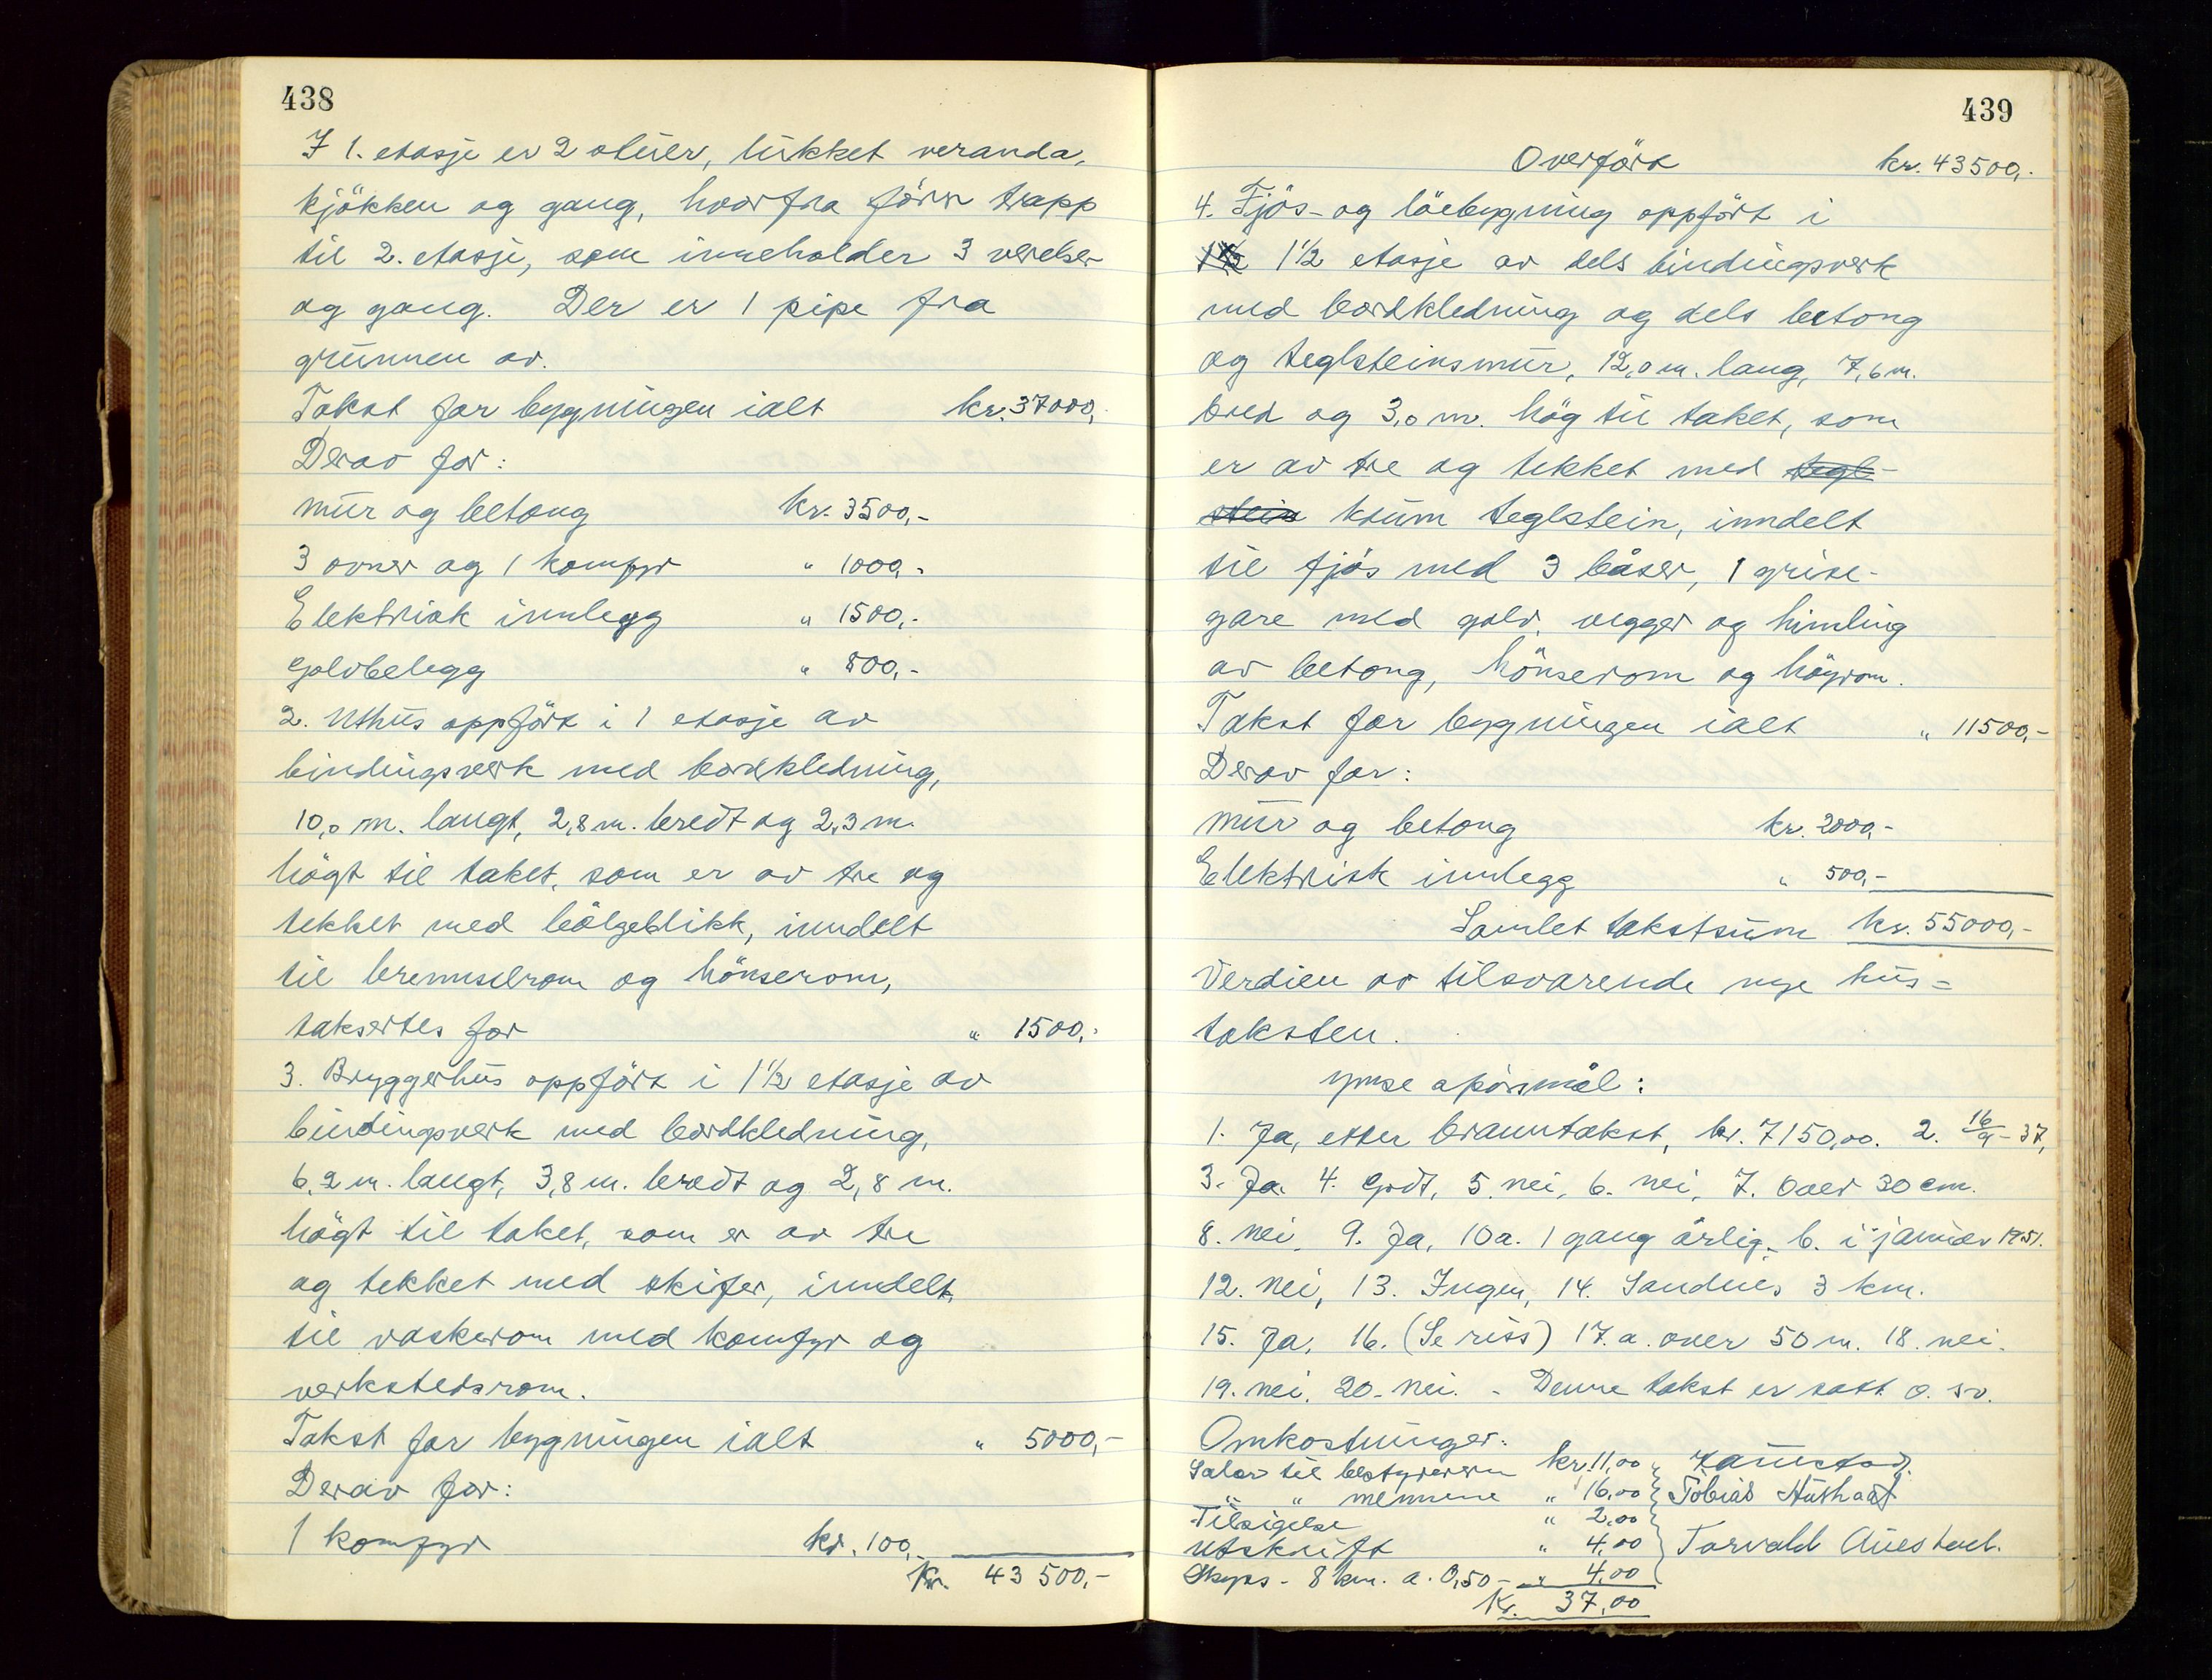 438
I 1. etasje er 2 stuer, lukket veranda,
kjökken og gang, hvorfra förer trapp
til 2. etasje, som inneholder 3 værelser
og gang. Der er 1 pipe fra
grunnen av.
Takst for bygningen ialt kr. 37000,-
Derav for:
Mur og betong kr. 3500,-
3 ovner og 1 komfyr " 1000,-
Elektrisk innlegg " 1500,-
Golvbelegg " 800,-
2. Uthus oppfört i 1 etasje av
bindingsverk med bordkledning,
10,0 m. langt, 2,8 m. bredt og 2,3 m.
högt til taket, som er av tre og
tekket med bölgeblikk, inndelt
til brennselrom og hönserom,
taksertes for " 1500,-
3. Bryggerhus oppfört i 1 1/2 etasje av
bindingsverk med bordkledning,
6,2 m. langt, 3,8 m. bredt og 2,8 m.
högt til taket, som er av tre
og tekket med skifer, inndelt
til vaskerom med komfyr og
verkstedsrom.
Takst for bygningen ialt " 5000,-
Derav for:
1 komfyr kr. 100,-
Kr. 43 500,-
439
Overfört kr. 43500,-
4. Fjös- og löebygning oppfört i
1 1/2 1 1/2 etasje av dels bindingsverk
med bordkledning og dels betong
og teglsteinsmur, 12,0 m. lang, 7,6 m.
bred og 3,0 m. hög til taket, som
er av tre og tekket med tegl-
stein krum teglstein, inndelt
til fjös med 3 båser, 1 grise-
gare med golv, vegger og himling
av betong, hönserom og höyrom.
Takst for bygningen ialt " 11500,-
Derav for:
Mur og betong kr. 2000,-
Elektrisk innlegg " 500,-
Samlet takstsum kr. 55000,-
Verdien av tilsvarende nye hus =
taksten.
Ymse spörsmål:
1. Ja, etter branntakst, kr. 7150,00. 2. 16/9 - 37,
3. Ja. 4. Godt, 5. nei, 6. nei, 7. Over 30 cm.
8. Nei, 9. Ja, 10a. 1 gang årlig, b. i januar 1951.
12. Nei, 13. Ingen, 14. Sandnes 3 km.
15. Ja, 16. (Se riss) 17. a. over 50 m. 18. nei.
19. nei, 20. Nei. - Denne takst er satt o. sv.
Omkostninger:
Salær til bestyreren kr. 11,00
" " mennene " 16,00 Tobias
Tilsigelse " 2,00
Utskrift " 4,00 Torvald Auestad.
Skyss - 8 km. a. 0,50 - " 4,00
Kr. 37,00